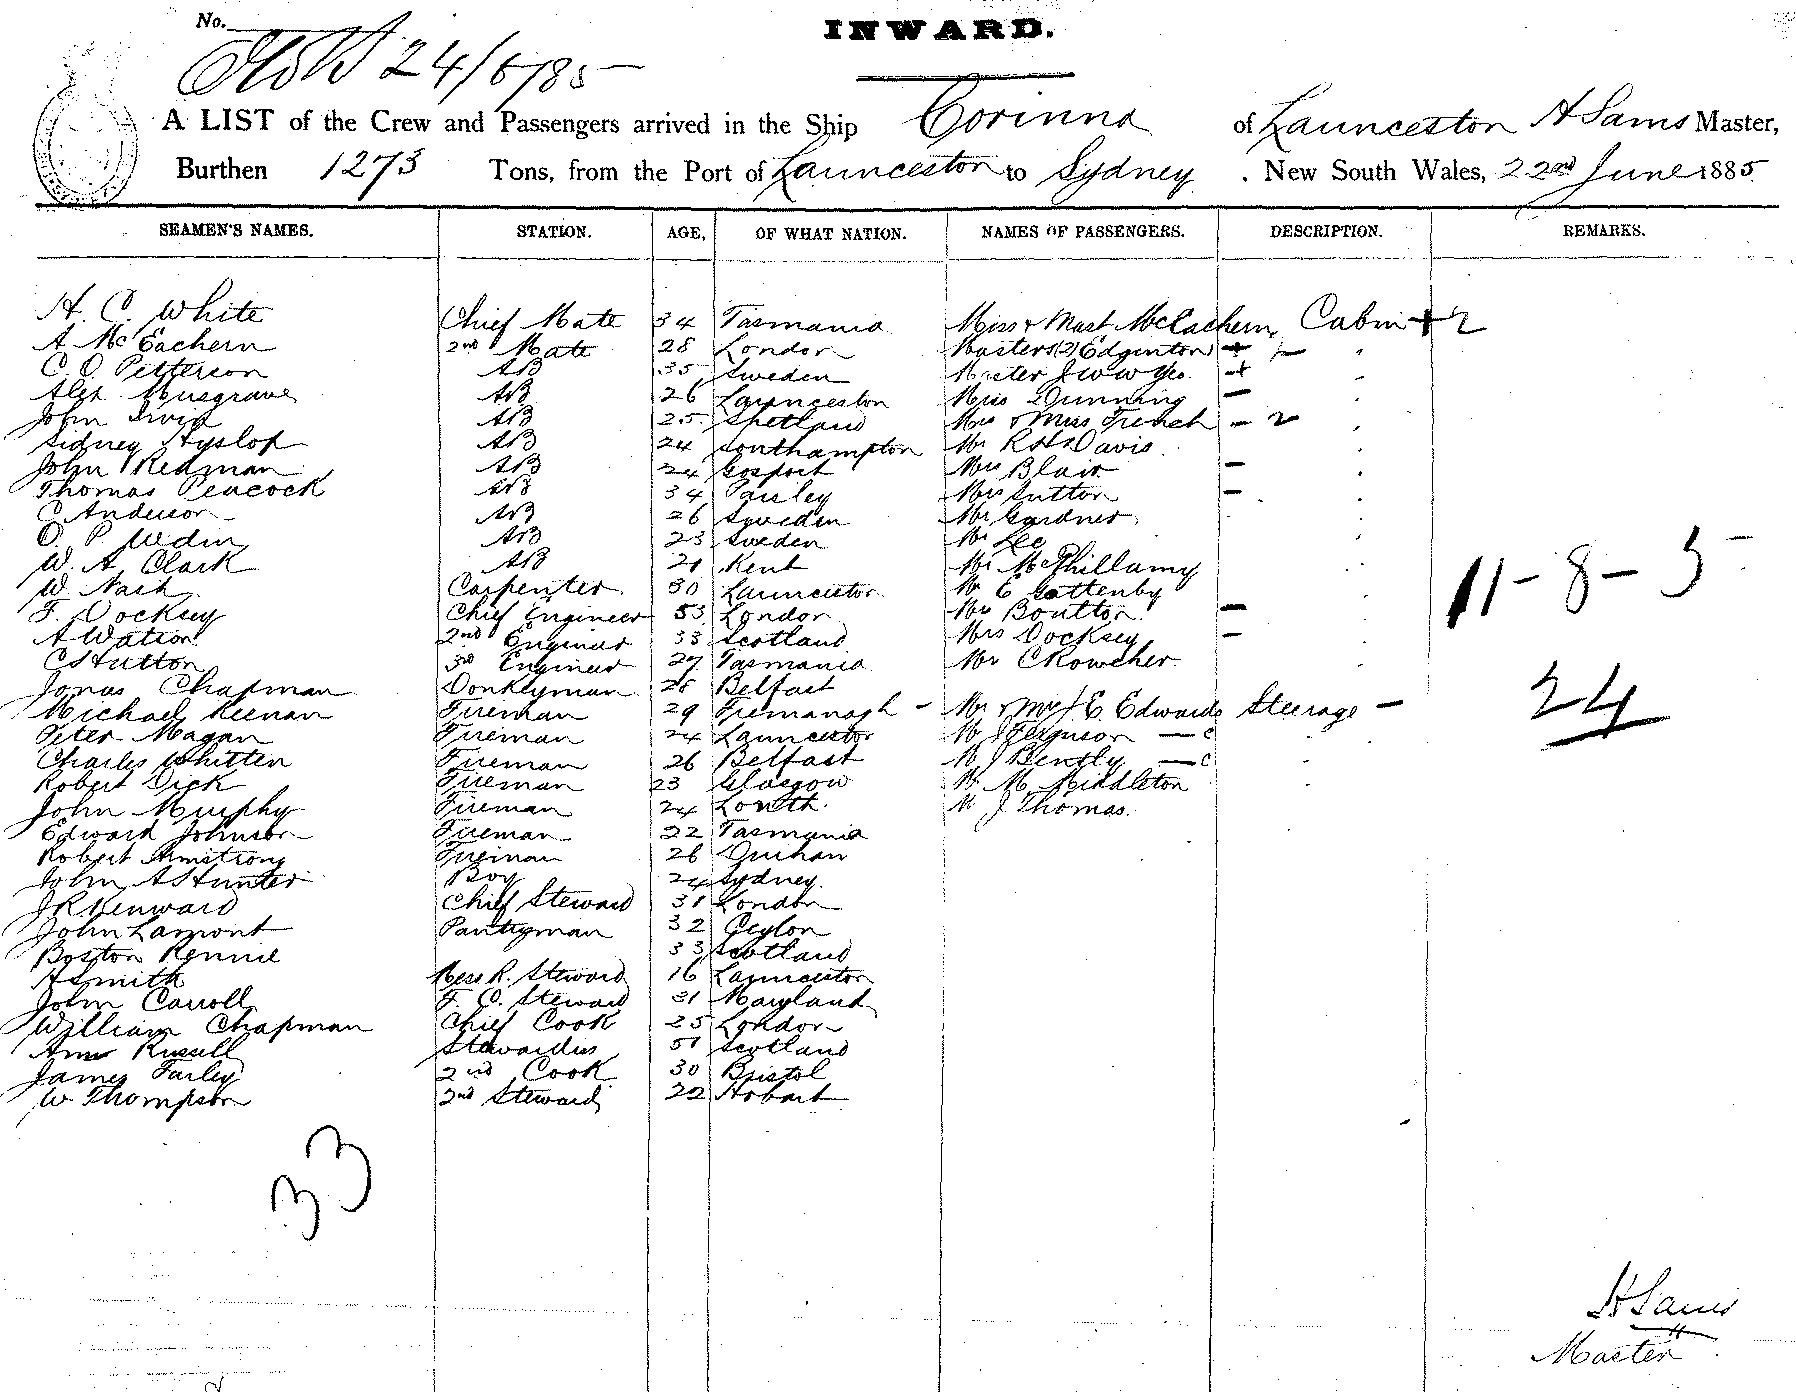 No.
INWARD.
24/6/85
A LIST of the Crew and Passengers arrived in the Ship Corinna of Launceston A Sams Master,
Burthen 1273 Tons, from the Port of Launceston to Sydney . New South Wales, 22nd June 1885
SEAMEN'S NAMES. STATION. AGE, OF WHAT NATION. NAMES OF PASSENGERS. DESCRIPTION. REMARKS.
H. C. White Chief Mate 34 Tasmania Miss & Mast McEachern Cabin + 2
A McEachern 2nd Mate 28 London Masters (2) Edginton
C. O. Petterson AB 35 Sweden Master
Alex Musgrave AB 26 Launceston Miss Dunning -
John Irvin AB 25 Shetland Mrs & Miss French - 2
Sidney Hyslop AB 24 Southampton Mr Davis
John Redman AB 24 Gosport Mrs Blair -
Thomas Peacock AB 34 Paisley Mrs Sutton -
C Anderson AB 26 Sweden Mr Gardner
O P AB 23 Sweden Mr Lee
W. A Clark AB 21 Kent Mr McPhillamy
W. Nash Carpenter 30 Launceston Mr E Gattenby
F. Docksey Chief Engineer 53 London Mrs Boutton -
A Watson 2nd Engineer 33 Scotland Mrs Docksey -
C Sutton 3rd Engineer 27 Tasmania Mr C Rowcher
11-8-5
Jonas Chapman Donkeyman 28 Belfast
Michael Keenan Fireman 29 - Mr & Mrs J. E. Edwards Steerage -
24
Peter Magan Fireman 24 Launceston Mr J Ferguson - c
Charles Whitten Fireman 26 Belfast Mr J Bently - c
Robert Dick Fireman 23 Glasgow Mr M. Middleton
John Murphy Fireman 24 Louth Mr J Thomas
Edward Johnson Fireman 22 Tasmania
Robert Armstrong Fireman 26
John A Hunter Boy 24 Sydney
J R Kenward Chief Steward 31 London
John Lamont Pantryman 32 Ceylon
Boston Rennie 33 Scotland
A Smith Mess R. Steward 16 Launceston
John Carroll F. C. Steward 31 Maryland
William Chapman Chief Cook 25 London
Ann Russell Stewardess 51 Scotland
James Farley 2nd Cook 30 Bristol
W Thompson 2nd Steward 22 Hobart
33
A Sams
Master